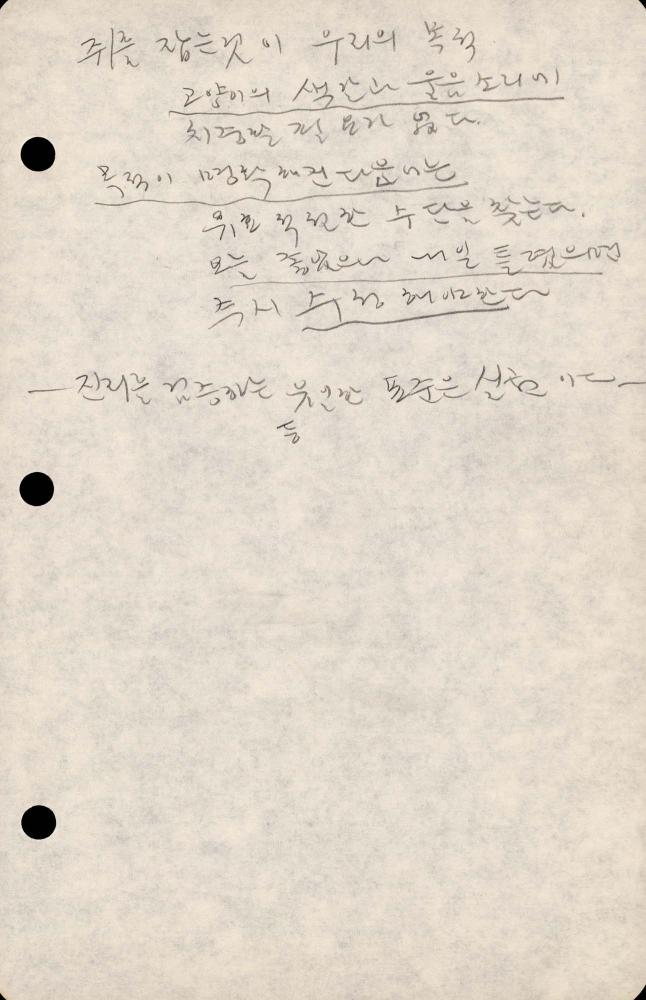 쥐를 잡는것이 우리의 목적
고양이의 색깔과 울음소리에
신경쓸 필요가 없다.
목적이 명확해진 다음에는
위로 적절한 수단을 찾는다.
오늘 좋았으나 내일 틀렸으면
즉시 수정해야한다
— 진리를 검증하는 유일한 표준은 실천이다 —
등